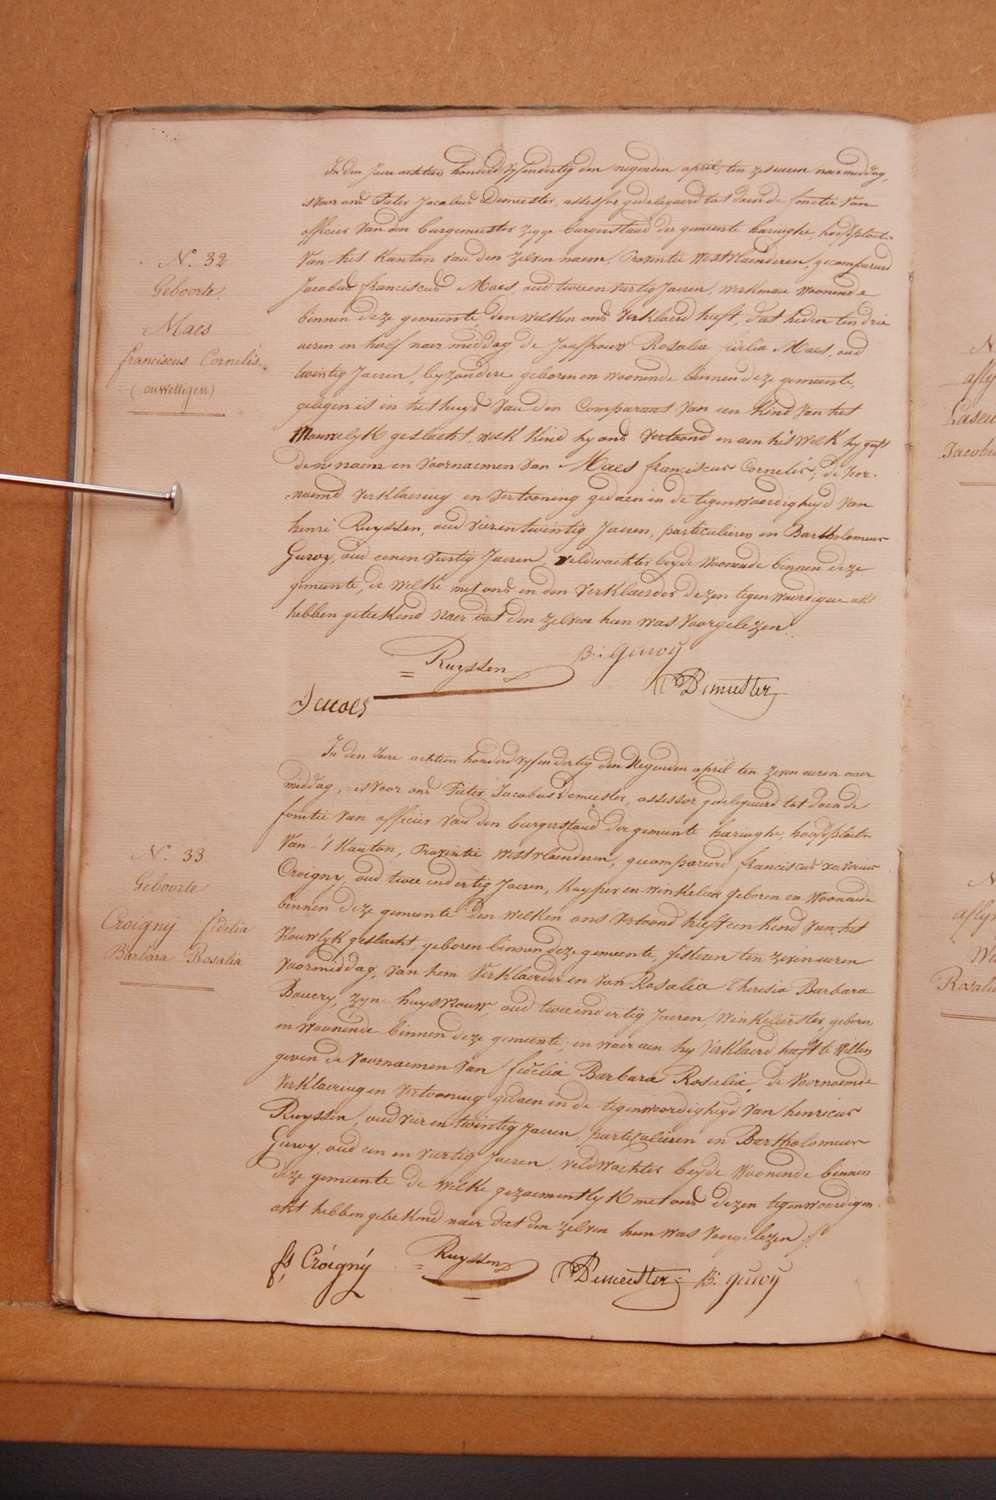 N. 32
Geboorte
Maes
franciscus Cornelis.
(onwettigen)
In den Jaere achttien honderd vyfendertig den negenden april, ten zes uren naermiddag,
is voor ons Pieter Jacobus Demeester, assessor gedelegeerd tot doen de fonctie Van
officier Van den burgemeester zegge burgerstand der gemeente haringhe hoofdplaets
Van het Kanton Van den zelven naem, Provintie Westvlaenderen, gecompareerd
Jacobus franciscus Maes, oud tweeen Vertig Jaeren, werkman Woonende
binnen deze gemeente, den welken ons Verklaerd heeft, dat heden ten drie
ueren en half naer middag de Jouffrouw Rosalia fidelia Maes, oud
twintig Jaeren, byzondere geboren en woonende binnen deze gemeente,
gelegen is in het huys Van den Comparant Van een Kind Van het
Mannelyk geslacht, welk Kind hy ons Vertoond en aen het welk hy geeft
den naem en Voornaemen Van Maes franciscus Cornelis, de Voor-
noemd Verklaering en Vertooning gedaen in de tegenwoordigheyd Van
henri Ruyssen, oud vier en twintig Jaeren, particulieren en Bartholomeus
Guwy, oud eenen Vertig Jaeren, Veldwachter beyde Woonende binnen deze
gemeente, de welke met ons en den Verklaerder dezen tegenwoordigen akt
hebben geteekend naer dat den zelven hun was Voorgelezen.
Ruyssen
B: guwy
Demeester
J maes
N. 33
Geboorte
Croigny fidelia
Barbara Rosalia
In den Jaere achttien honderd vyfendertig den Negenden april ten zeven ueren voor
middag, is voor ons Pieter Jacobus Demeester, assessor gedelegeerd tot doen de
fonctie Van officier Van den burgerstand der gemeente haringhe, hoofdplaets
Van 't Kanton, Provintie Westvlaenderen, gecompareerd franciscus xaverius
Croigny, oud twee endertig Jaeren, Kuyper en winkelier geboren en Woonende
binnen deze gemeente Den welken ons Vertoond heeft een Kind Van het
Vrouwlyk geslacht, geboren binnen deze gemeente, gisteren ten zeven ueren
Voormiddag, Van hem Verklaerder en Van Rosalia Theresia Barbara
Bouery, zyn huysvrouw, oud twee endertig Jaeren, Winkelierster, geboren
en woonende binnen deze gemeente, en waer aen hy Verklaerd heeft te willen
geven de Voornaemen Van fidelia Barbara Rosalia, de Voornoemde
Verklaeringen Vertooning gedaen in de tegenwoordigheyd Van henricus
Ruyssen, oud vier en twintig Jaeren, particulieren en Bartholomeus
Guwy, oud een en Vertig Jaeren, Veldwachter beyde Woonende binnen
deze gemeente de welke gezaementlyk met ons dezen tegenwoordigen
akt hebben geteekend naer dat den zelven hun was Voorgelezen
fs Croigny
Ruyssen
Demeester
B: guwy